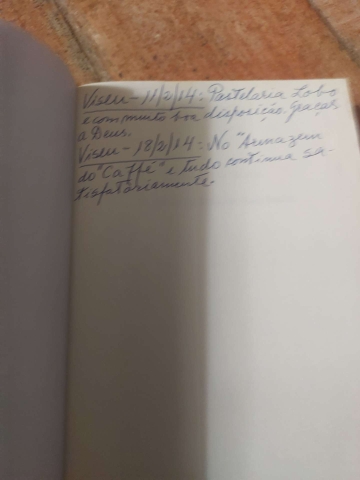 Viseu - 11/2/14: Pastelaria Lobo
e com muito boa disposição. Graças
a Deus.
Viseu - 18/2/14: No "Armazem
do "Caffé" e tudo continua sa-
tisfatóriamente.